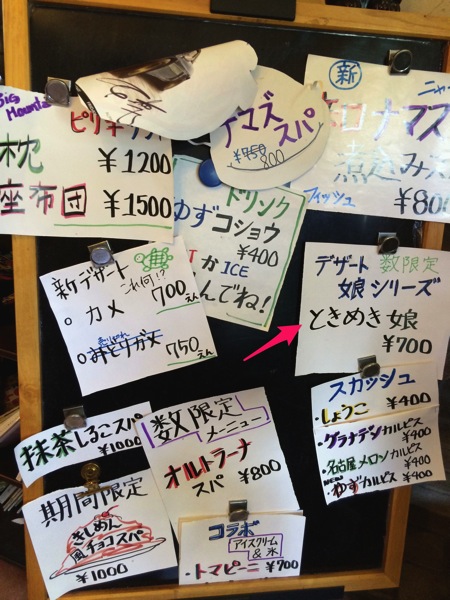 Big Mounta
ピリ
¥1200
枕
座布団 ¥1500
ナマズ
スパ
¥950
800
新
ニャ
ロナマス
煮込み
フィッシュ ¥80
ドリンク
ゆずコショウ
¥400
T か ICE
んでね!
新デザート
これ何!?
○ カメ 700えん
○ みどりガメ 750えん
デザート 数限定
娘シリーズ
ときめき娘
¥700
スカッシュ
・しょうこ ¥400
・グラナデンカルピス
¥400
・名古屋メロンカルピス
¥400
NEW
・ゆずカルピス
¥400
抹茶しるこスパ
¥1000
数限定
メニュー
オルトラーナ
スパ ¥800
期間限定
きしめん
風チョコスパ
¥1000
コラボ
アイスクリーム
& 氷
・トマピーニ ¥700